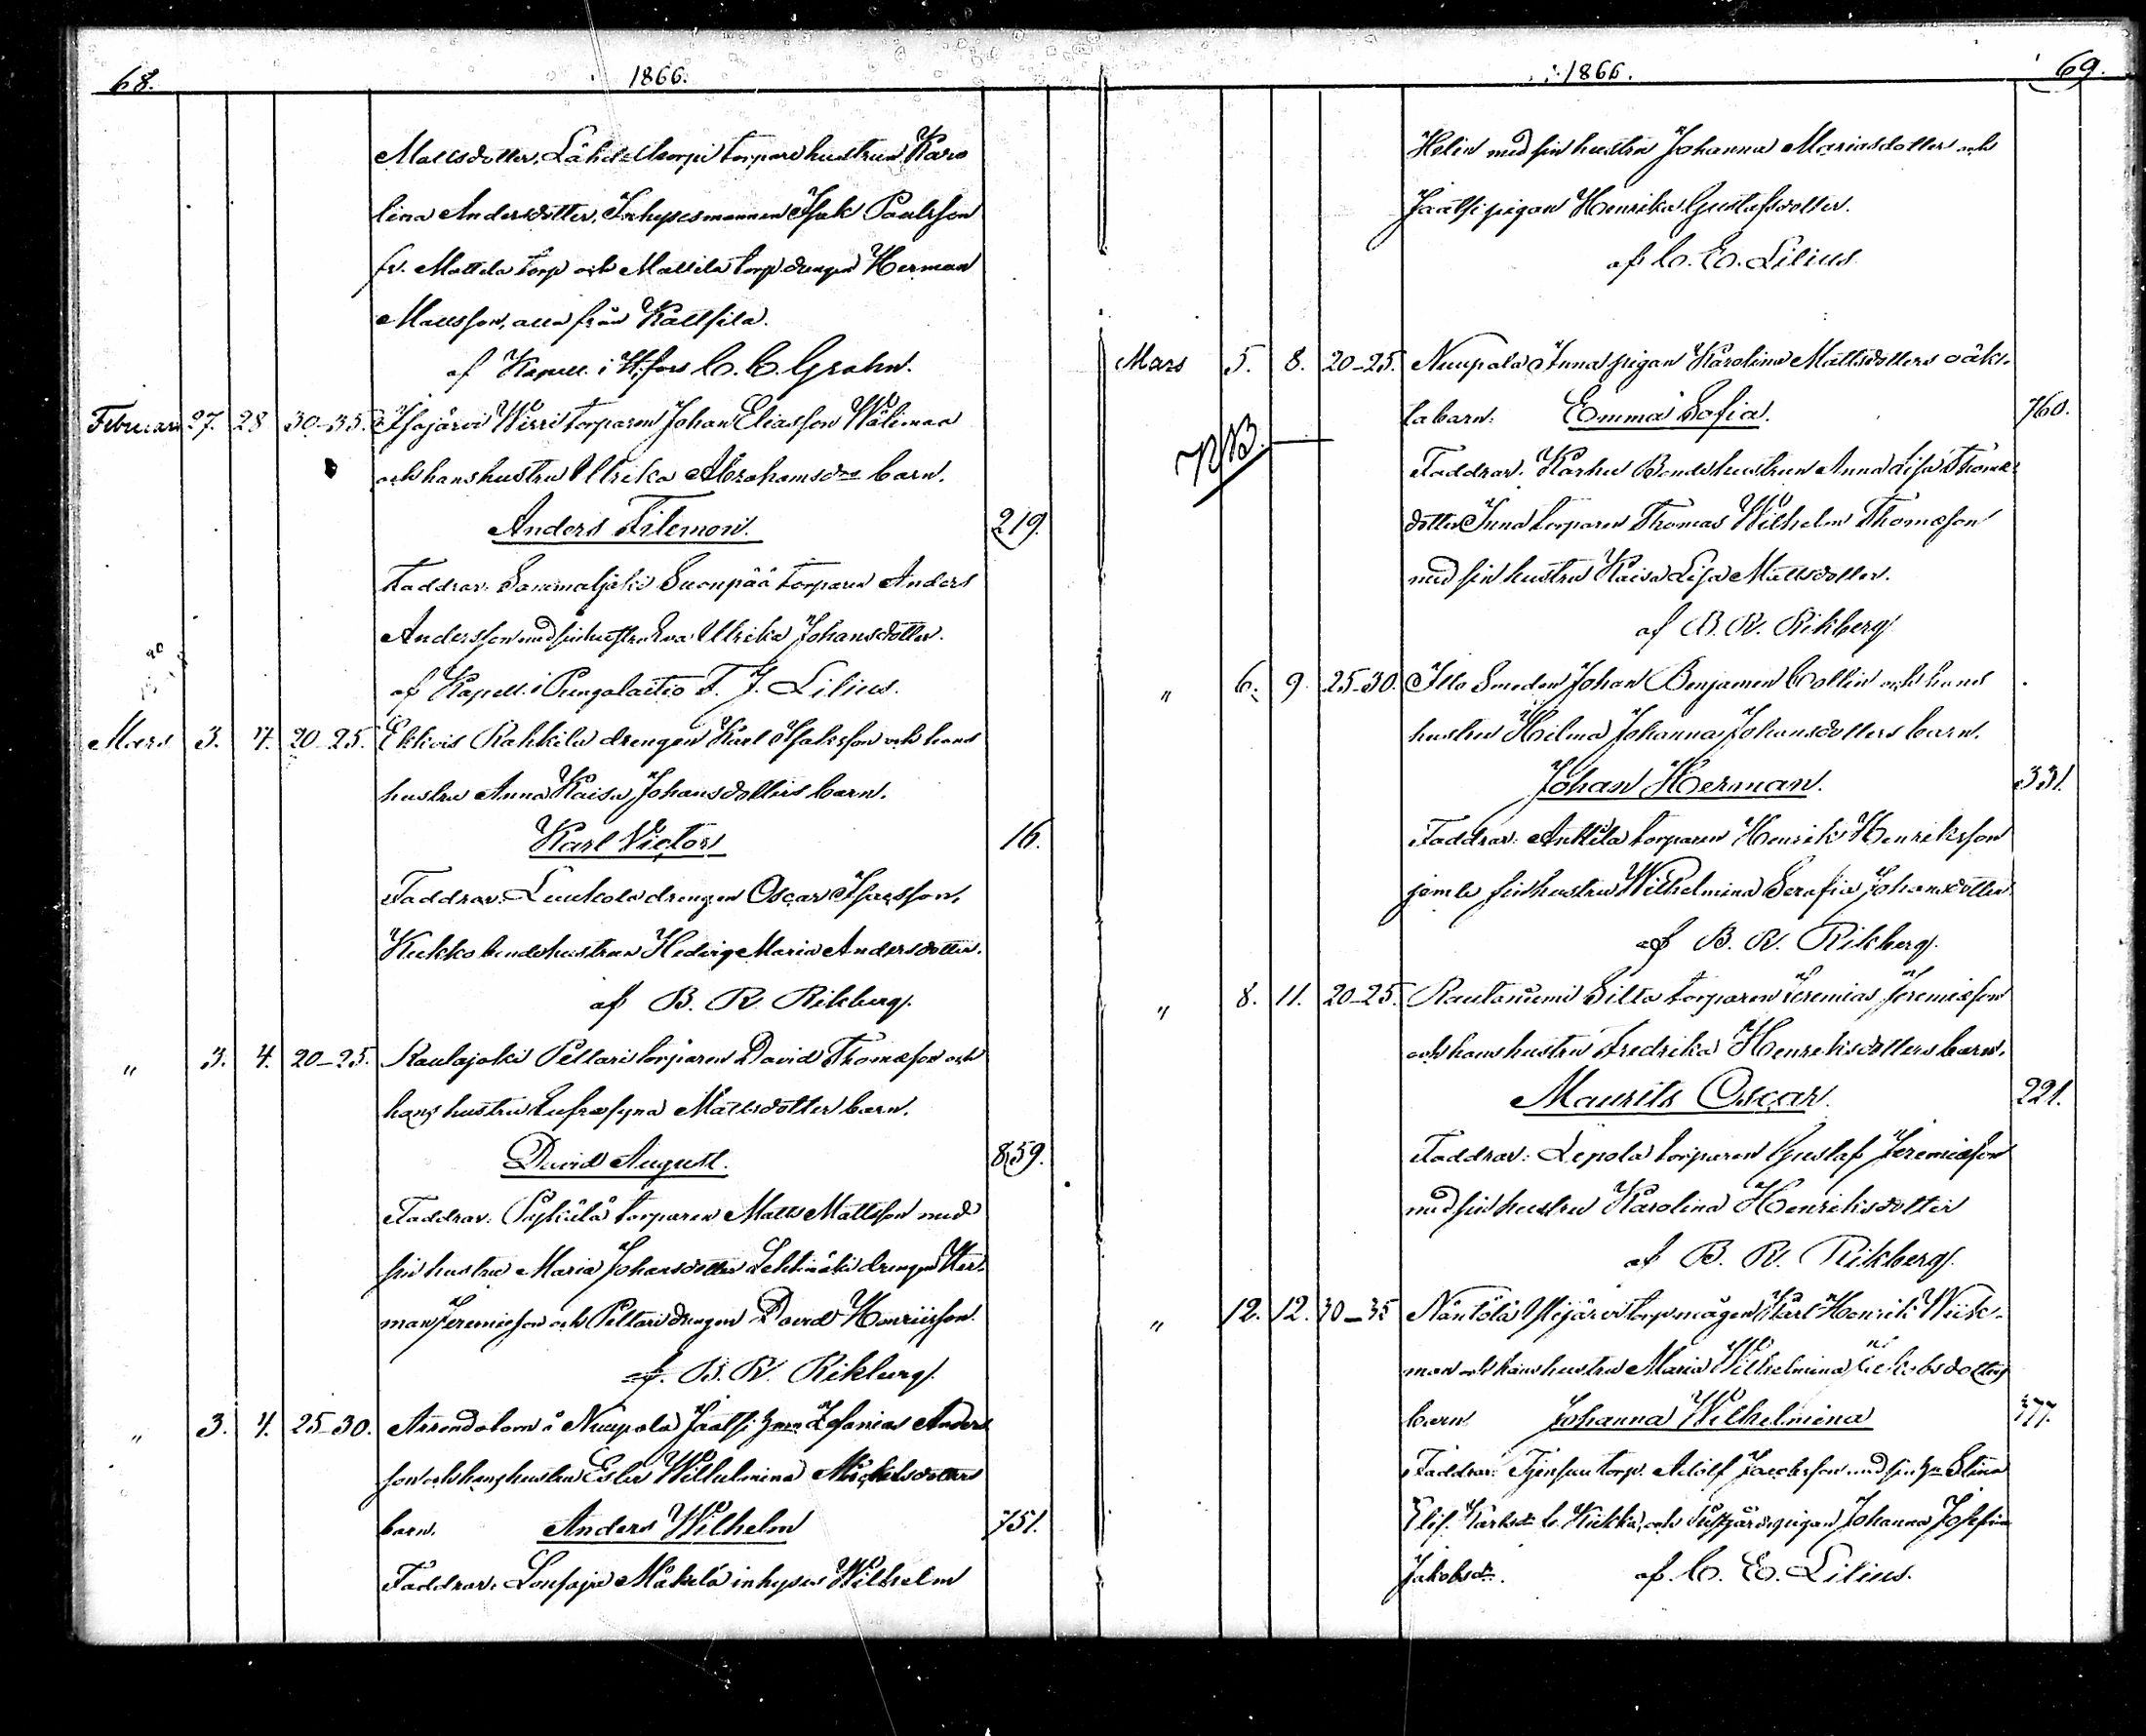 68. 1866.
Mattsdotter, Lähdekorpi torpare hustrun Karo
lina Andersdotter, Inhysesmannen Isak Paulsson
fr. Mattila torp och Mattila torp drengen Herman
Mattsson, alla från Kallsila.
af Kapell. i H:fors C. C. Grahn.
Februari 27. 28 30-35. Isojärvi Wirri torparen Johan Eliasson Wälimaa
och hans hustru Ulrika Abrahamsdrs barn.
Anders Filemon. 219.
Faddrar: Sammaljoki Suonpää torparen Anders
Andersson med sin hustru Eva Ulrika Johansdotter.
af Kapell. i Pungalaitio F. J. Lilius.
Mars 3. 4. 20-25. Ekkois Rahkila drengen Karl Isaksson och hans
hustru Anna Kaisa Johansdotters barn.
Karl Victor 16.
Faddrar: Luukola drengen Oscar Isaksson,
Kukko bonde hustrun Hedvig Maria Andersdotter.
af B. R. Rikberg.
" 3. 4. 20-25. Raulajoki Peltari torparen David Thomasson och
hans hustru Eufrosyna Mattsdotter barn.
David August. 859.
Faddrar: torparen Matts Mattsson med
sin hustru Maria Johansdotter drengen Her-
man Jeremiasson och Peltari drengen David Henriksson.
af. B. R. Rikberg.
" 3. 4. 25-30. å Nuupala Jaatsi Zefanias Anders
son och hans hustru Ester Wilhelmina Michelsdotters
barn. Anders Wilhelm 751.
Faddrar: Mäkelä inhyses Wilhelm
1866. 69.
Helin med sin hustru Johanna Mariasdotter och
Jaatsi pigan Henrika Gustafsdotter.
af C. E. Lilius
Mars 5. 8. 20-25. Nuupala Inna pigan Karolina Mattsdotters oäk-
ta barn. Emma Sofia. 760.
NB.
Faddrar: Karhu Bonde hustrun Anna Lisa Thomæ
dotter Inna torparen Thomas Wilhelm Thomasson
med sin hustru Kaisa Lisa Mattsdotter.
af B. R. Rikberg
" 6. 9. 25-30. Illo Smeden Johan Benjamin Collin och hans
hustru Hilma Johanna Johansdotters barn.
Johan Herman. 331.
Faddrar: Anttila torparen Henrik Henriksson
jemte sin hustru Wilhelmina Serafia Johansdotter
af B. R. Rikberg.
" 8. 11. 20-25. Rautanumi Silta torparen Jeremias Jeremiasson
och hans hustru Fredrika Henriksdotters barn.
Maurits Oscar. 221.
Faddrar: Lepola torparen Gustaf Jeremiasson
med sin hustru Karolina Henriksdotter
af B. R. Rikberg.
" 12. 12. 30-35 Näntölä torpmågen Karl Henrik Wick-
man och hans hustru Maria Wilhelmina Jakobsdotters
barn. Johanna Wilhelmina 777.
Faddrar: torp. Adolf Jacobsson med sin Stina
och pigan Johanna Josefina
Jakobsdr. af. C. E. Lilius.